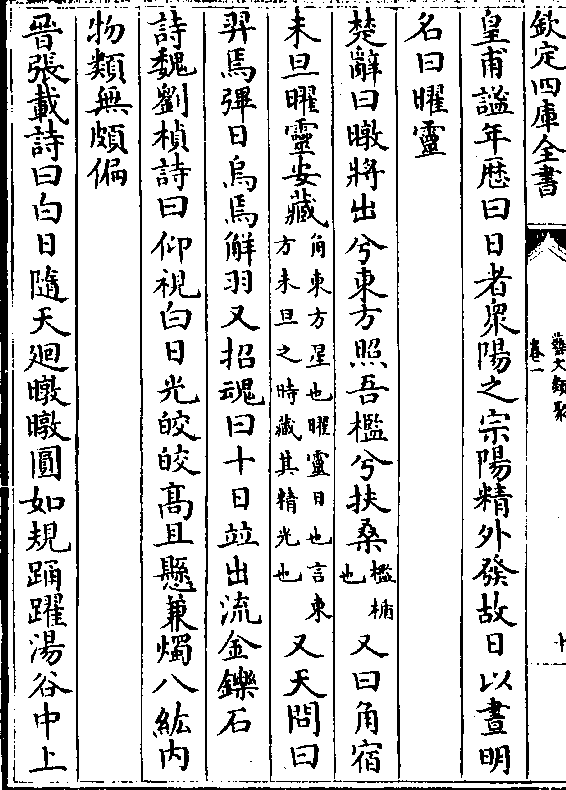 欽定四庫全書
藝文類聚
卷一
皇甫謐年歷曰日者衆陽之宗陽精外發故日以晝明
名曰曜靈
楚辭曰暾將出兮東方照吾檻兮扶桑檻楯也又曰角宿
未旦曜靈安藏角東方星也曜靈日也言東方未旦之時藏其精光也又天問曰
羿焉彈日烏焉解羽又招魂曰十日竝出流金鑠石
詩魏劉楨詩曰仰視白日光皎皎髙且懸兼燭八紘内
物類無頗偏
晉張載詩曰白日隨天迴暾暾圓如規踊躍湯谷中上